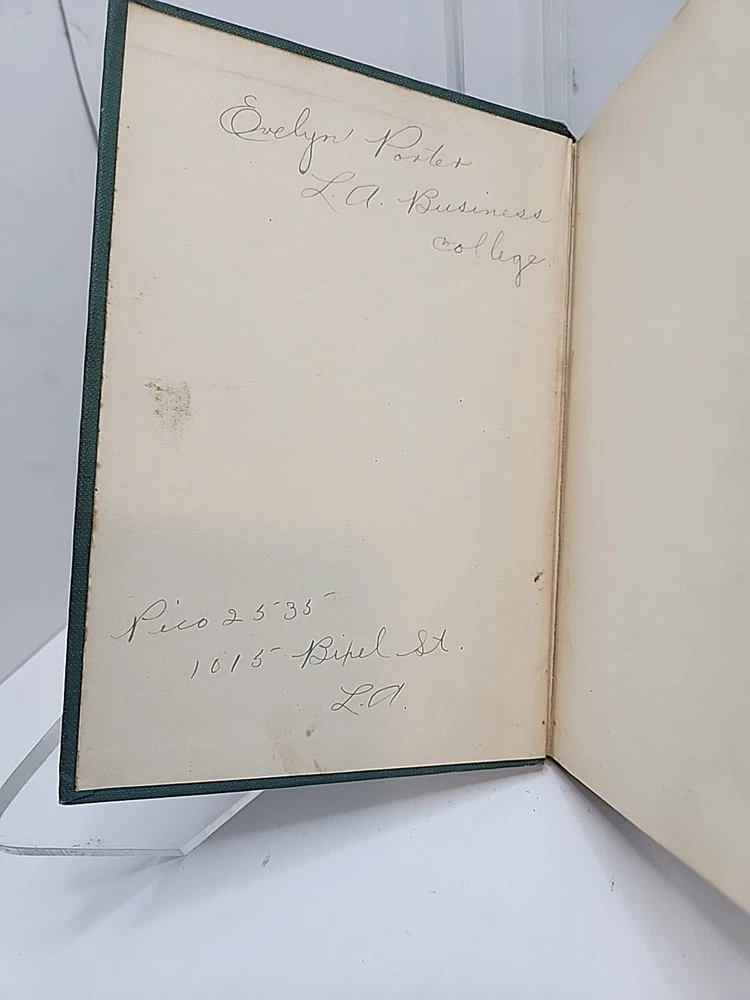 Evelyn Porter
L. A. Business
college.
Pico 2535
1015 Bixel St.
L.A.